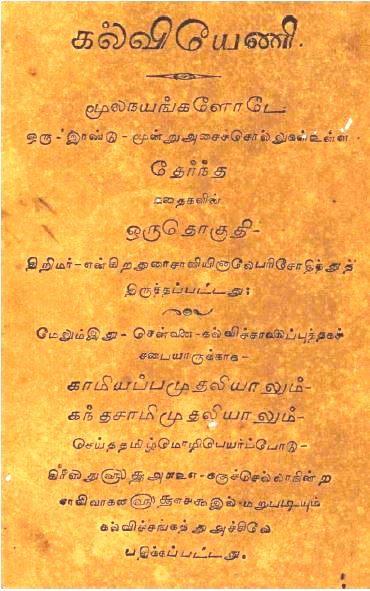 கல்வியேணி.
மூலநயங்களோடே
ஒரு-இரண்டு-மூன்று அசைச்சொல்லுகள் உள்ள
தேர்ந்த
கதைகளின்
ஒருதொகுதி-
கிறிமர்-என்கிற துரைசானியினாலே பரிசோதித்துத்
திருத்தப்பட்டது;
மேலும் இது-சென்னை-கல்விச்சாலைப்புத்தகச்
சபையாருக்காக-
காமியப்பமுதலியாலும்-
கந்தசாமிமுதலியாலும்-
செய்ததமிழ்மொழிபெயர்ப்போடு-
கருச்செல்லாகின்ற
இல்-மறுபடியும்
கல்விச்சங்கத்து அச்சிலே
பதிக்கப்பட்டது.